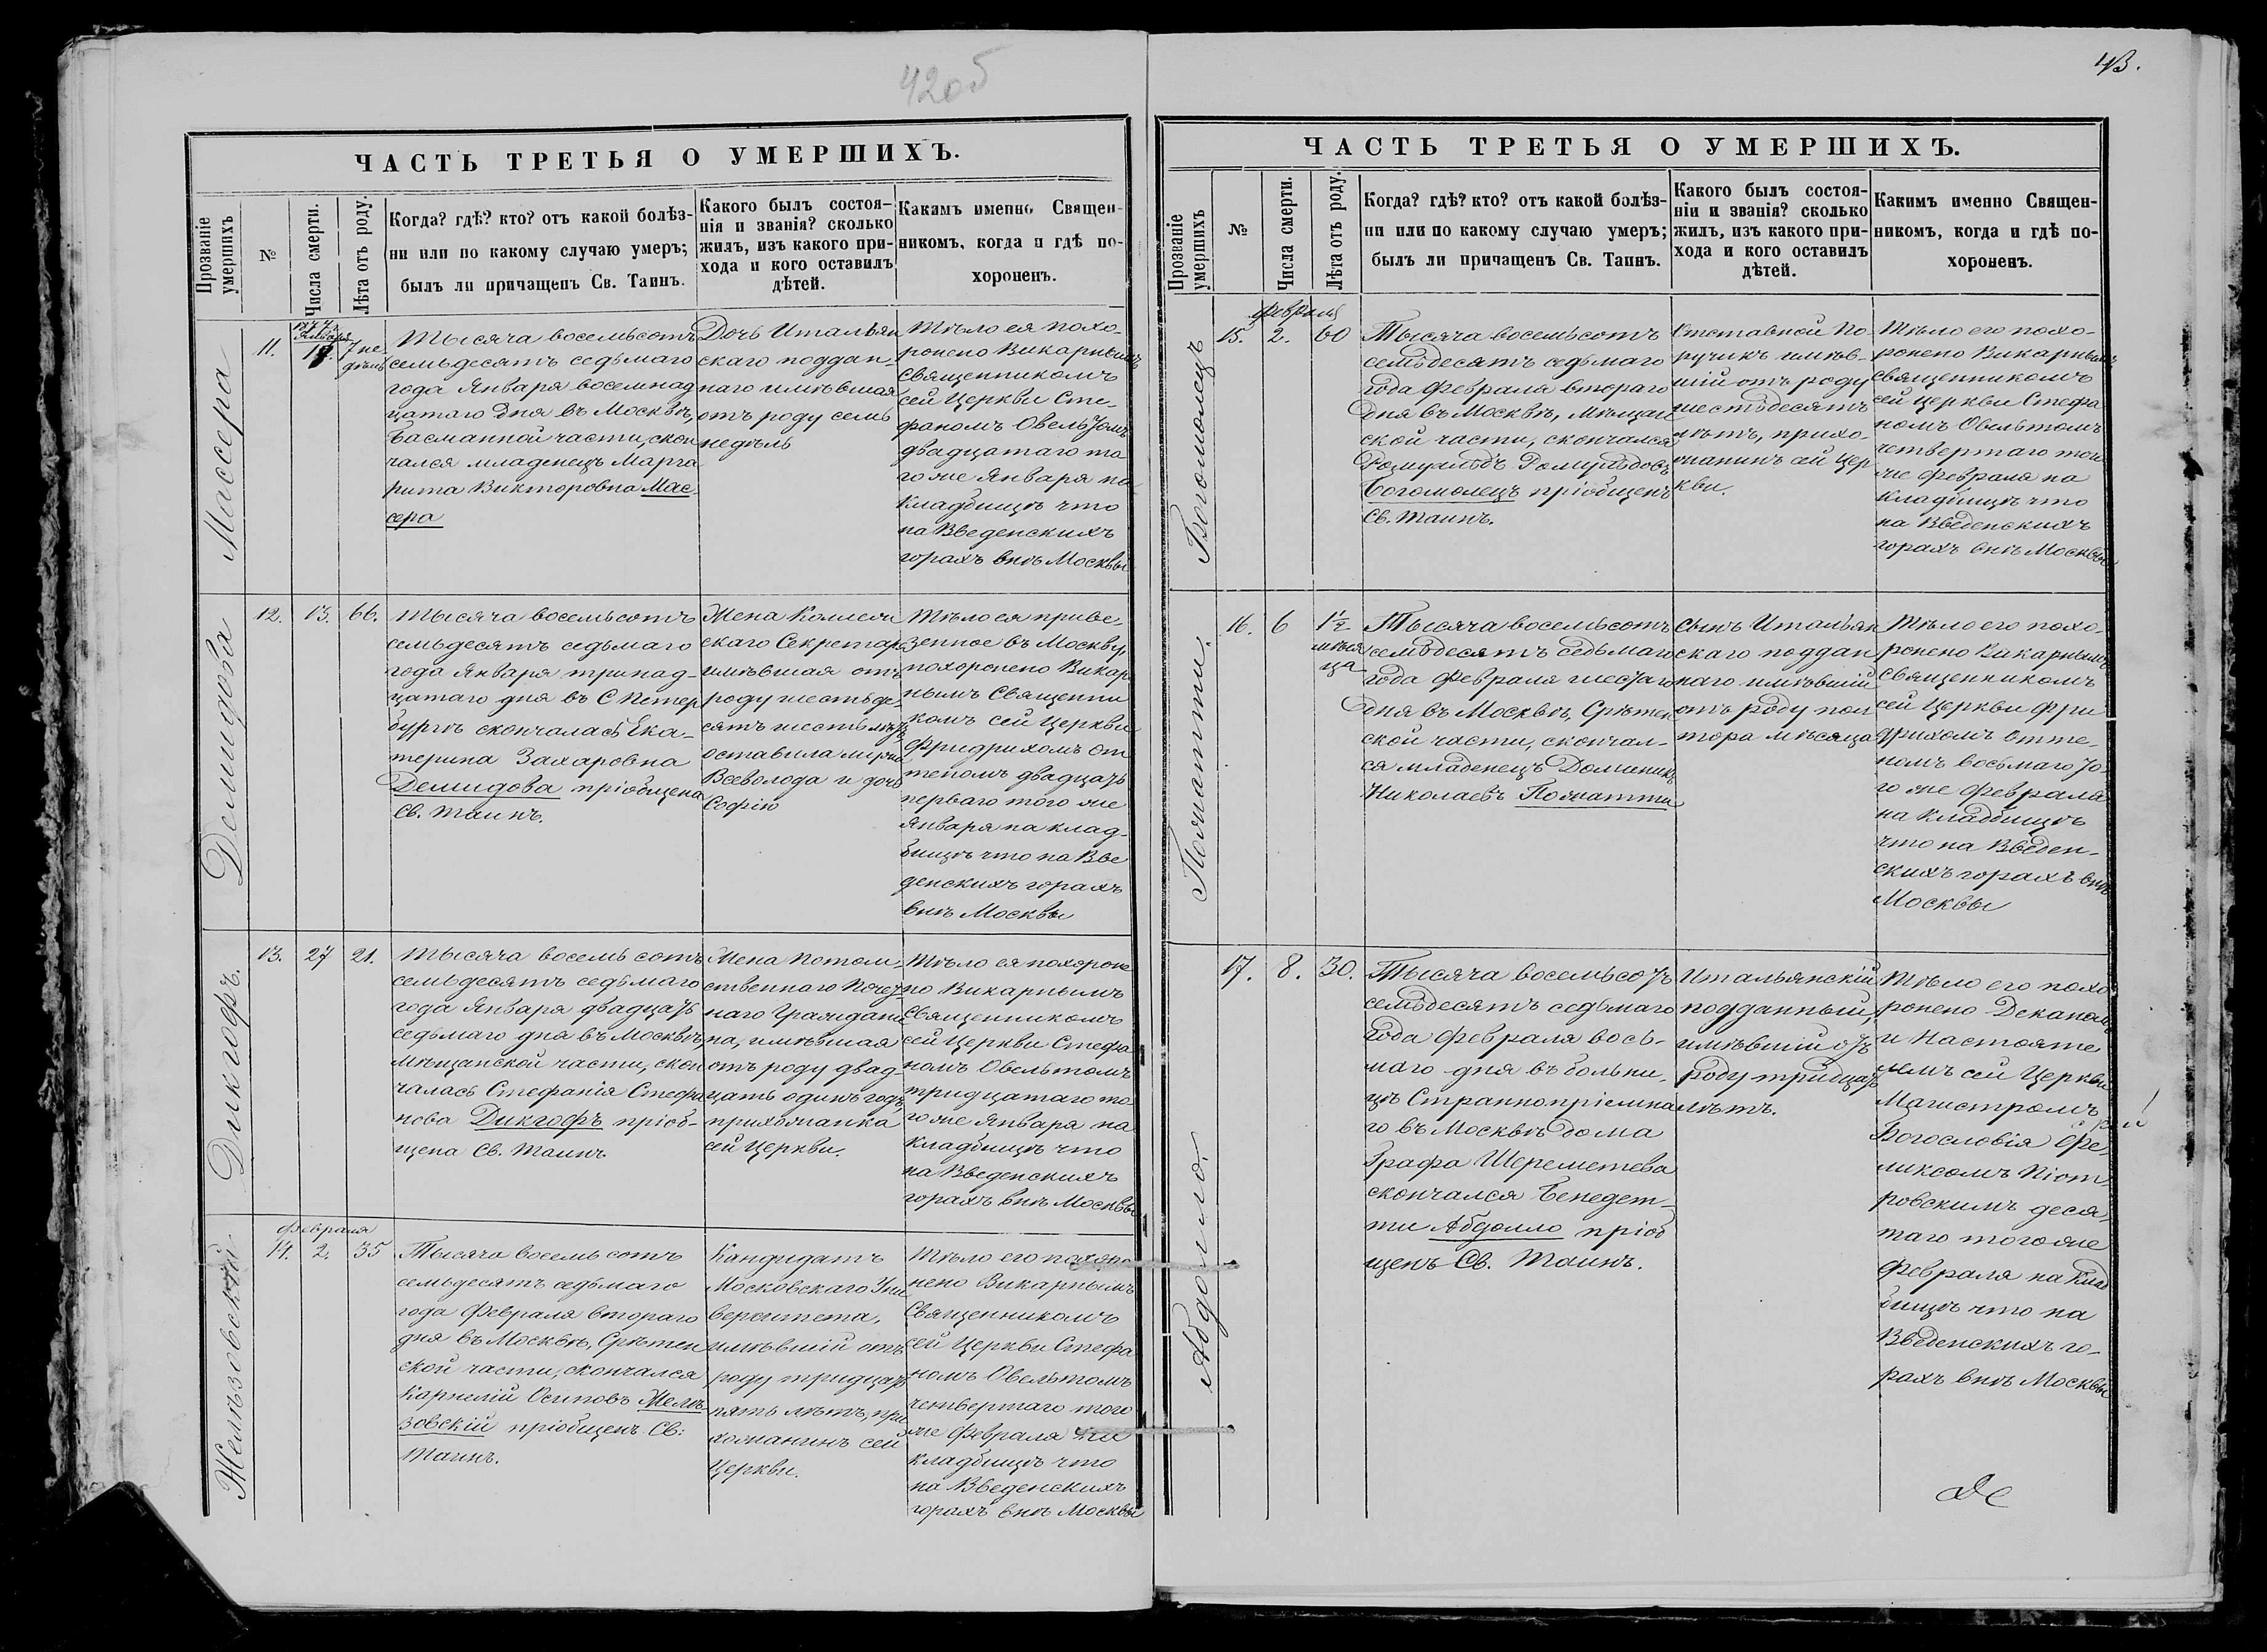 42об
ЧАСТЬ ТРЕТЬЯ О УМЕРШИХЪ.
Прозваніе умершихъ
№
Числа смерти.
Лѣта отъ роду.
Когда? гдѣ? кто? отъ какой болѣз-
ни или по какому случаю умеръ;
былъ ли причащенъ Св. Таинъ.
Какого былъ состоя-
нія и званія? сколько
жилъ, изъ какого при-
хода и кого оставилъ
дѣтей.
Какимъ именно Священ-
никомъ, когда и гдѣ по-
хороненъ.
Массера
11.
1877 г.
Января
18.
7 не
дѣль
Тысяча восемьсотъ
семьдесятъ седьмаго
года Января восемнад
цатаго дня въ Москвѣ,
Басманной части, скон
чался младенецъ Марга
рита Викторовна Мас-
сера
Дочь Итальян
скаго поддан-
наго имѣвшая
отъ роду семь
недѣль
Тѣло ея похо-
ронено Викарнымъ
Священникомъ
сей Церкви Сте-
фаномъ Овельтомъ
двадцатаго то
го же Января на
Кладбищѣ что
на Введенскихъ
горахъ внѣ Москвы
Демидова
12.
13.
66.
Тысяча восемьсотъ
семьдесятъ седьмаго
года Января тринад-
цатаго дня въ С Петер
бургѣ скончалась Ека-
терина Захаровна
Демидова пріобщена
Св. Таинъ.
Жена Коллежс
скаго Секретаря
имѣвшая отъ
роду шестьде-
сятъ шесть лѣтъ
оставила сына
Всеволода и дочь
Софію
Тѣло ея приве-
зенное въ Москву,
похоронено Викар
нымъ Священни
комъ сей Церкви
Фридрихомъ От
теномъ двадцать
перваго того же
Января на клад-
бищѣ что на Вве
денскихъ горахъ
внѣ Москвы
Дикгофъ.
13.
27
21.
Тысяча восемь сотъ
семьдесятъ седьмаго
года Января двадцать
седьмаго дня въ Москвѣ,
Мѣщанской части, скон
чалась Стефанія Стефа
нова Дикгофъ пріоб-
щена Св. Таинъ
Жена Потом-
ственнаго Почет-
наго Граждани
на, имѣвшая
отъ роду двад-
цать одинъ годъ,
прихожанка
сей Церкви.
Тѣло ея похороне
но Викарнымъ
Священникомъ
сей Церкви Стефа
номъ Овельтомъ
тридцатаго то-
го же Января на
кладбищѣ что
на Введенскихъ
горахъ внѣ Москвы
Желѣзовскій
Февраля
14.
2.
35
Тысяча восемь сотъ
семьдесятъ седьмаго
года Февраля втораго
дня въ Москвѣ, Срѣтен
ской части, скончался
Карнилій Осиповъ Желѣ-
зовскій пріобщенъ Св:
Таинъ.
Кандидатъ
Московскаго Уни
верситета,
имѣвшій отъ
роду тридцать
пять лѣтъ, при
хожанинъ сей
Церкви.
Тѣло его похоро
нено Викарнымъ
Священникомъ
сей Церкви Стефа
номъ Овельтомъ
четвертаго того
же Февраля на
кладбищѣ что
на Введенскихъ
горахъ внѣ Москвы
43.
ЧАСТЬ ТРЕТЬЯ О УМЕРШИХЪ.
Прозваніе умершихъ
№
Числа смерти.
Лѣта отъ роду.
Когда? гдѣ? кто? отъ какой болѣз-
ни или по какому случаю умеръ;
былъ ли причащенъ Св. Таинъ.
Какого былъ состоя-
ніи и званія? сколько
жилъ, изъ какого при-
хода и кого оставилъ
дѣтей.
Какимъ именно Священ-
никомъ, когда и гдѣ по-
хороненъ.
Богомолецъ
Февраля
15.
2.
60
Тысяча восемьсотъ
семьдесятъ седьмаго
года Февраля втораго
дня въ Москвѣ, Мѣщан
ской части, скончался
Ромуальдъ Ромуальдовъ
Богомолецъ пріобщенъ
Св. Таинъ.
Отставной По
ручикъ имѣв-
шій отъ роду
шестьдесятъ
лѣтъ, прихо-
жанинъ сей Цер
кви.
Тѣло его похо-
ронено Викарнымъ
Священникомъ
сей Церкви Стефа
номъ Овельтомъ
четвертаго того
же Февраля на
Кладбищѣ что
на Введенскихъ
горахъ внѣ Москвы
16.
6
1½
мѣся
ца
Тысяча восемьсотъ
семьдесятъ седьмаго
года Февраля шестаго
дня въ Москвѣ, Срѣтен
ской части, скончал-
ся младенецъ Доминикъ
Николаевъ
Сынъ Итальян
скаго поддан
наго имѣвшій
отъ роду пол
тора мѣсяца
Тѣло его похо-
ронено Викарнымъ
Священникомъ
сей Церкви Фри
дрихомъ Отте-
номъ восьмаго то-
го же Февраля
на Кладбищѣ
что на Введен-
скихъ горахъ внѣ
Москвы
Абдолло.
17.
8.
30.
Тысяча восемьсотъ
семьдесятъ седьмаго
года Февраля вось-
маго дня въ больни-
цѣ Страннопріимна
го въ Москвѣ дома
Графа Шереметева
скончался Бенедет-
ти Абдолло пріоб
щенъ Св. Таинъ.
Итальянскій
подданный,
имѣвшій отъ
роду тридцать
лѣтъ.
Тѣло его похо
ронено Деканомъ
и Настояте
лемъ сей Церкви
Магистромъ
Богословія Фе-
ликсомъ Піот-
ровскимъ деся-
таго того же
Февраля на Клад
бищѣ что на
Введенскихъ го-
рахъ внѣ Москвы